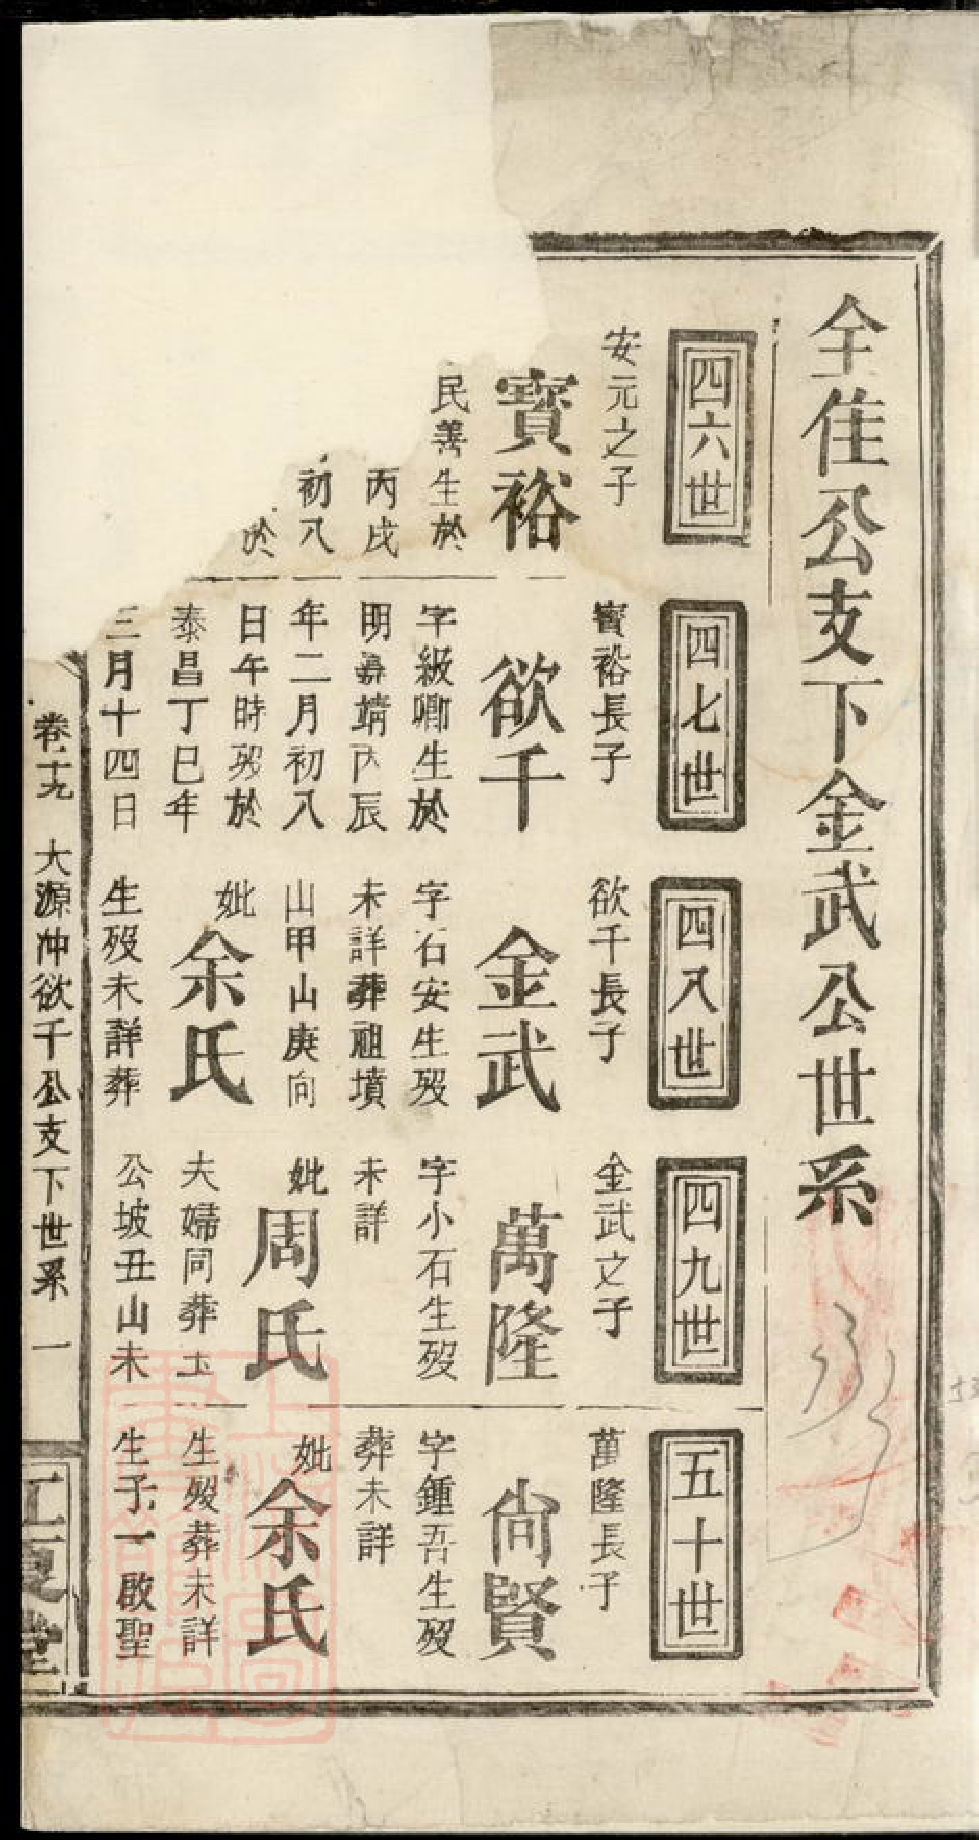 全隹公支下金武公世系
四六世
安元之子
寳裕
民善生於
丙戌
初八
於
四七世
寳裕長子
欲千
字級卿生於
明嘉靖丙辰
年二月初八
日午時歿於
泰昌丁巳年
三月十四日
四八世
欲千長子
金武
字石安生歿
未詳葬祖墳
山甲山庚向
妣
余氏
生歿未詳葬
四九世
金武之子
萬隆
字小石生歿
未詳
妣
周氏
夫婦同葬土
公坡丑山未
五十世
萬隆長子
尙賢
字鍾吾生歿
葬未詳
妣
余氏
生歿葬未詳
生子一啟聖
卷十九 大源仲欲千公支下世系 一
江夏堂
上海圖
書館藏